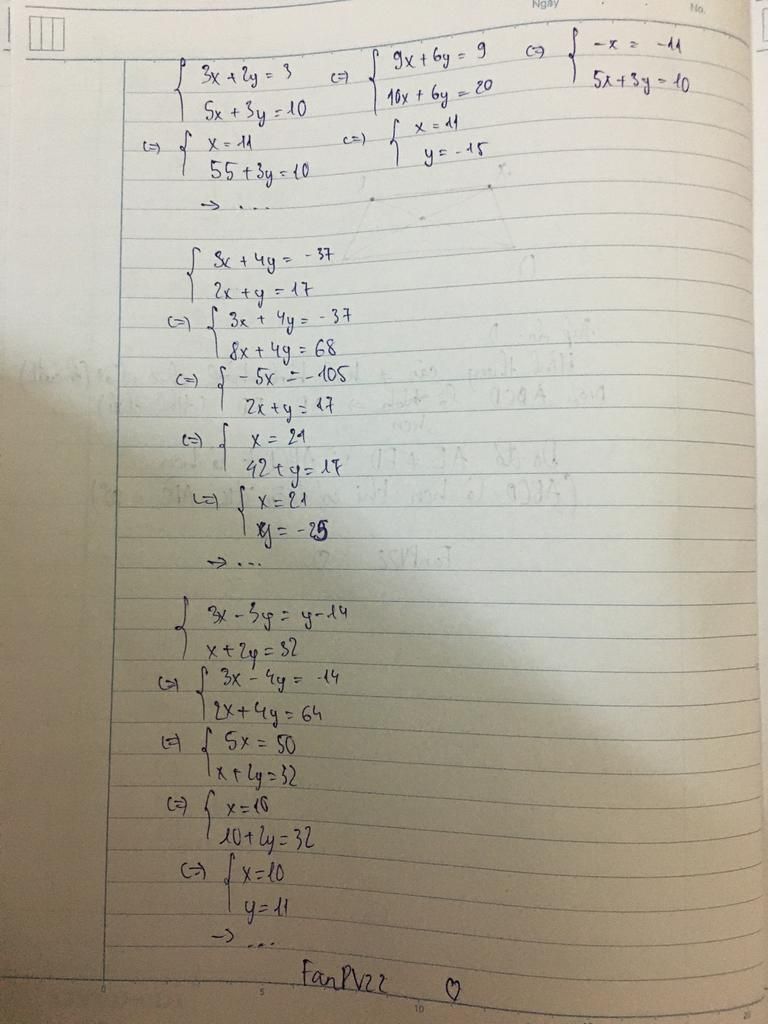 Ngày No.
{ 3x + 2y = 3 (=) { 9x + 6y = 9 (=) { -x = -11
5x + 3y = 10 10x + 6y = 20 5x + 3y = 10
(=) { x = 11 (=) { x = 11
55 + 3y = 10 y = -15
→ ...
{ 3x + 4y = -37
2x + y = 17
(=) { 3x + 4y = -37
8x + 4y = 68
(=) { -5x = -105
2x + y = 17
(=) { x = 21
42 + y = 17
(=) { x = 21
y = -25
→ ...
{ 3x - 3y = y - 14
x + 2y = 32
(=) { 3x - 4y = -14
2x + 4y = 64
(=) { 5x = 50
x + 2y = 32
(=) { x = 10
10 + 2y = 32
(=) { x = 10
y = 11
→ ...
FanPV22 ♡
0 5 10